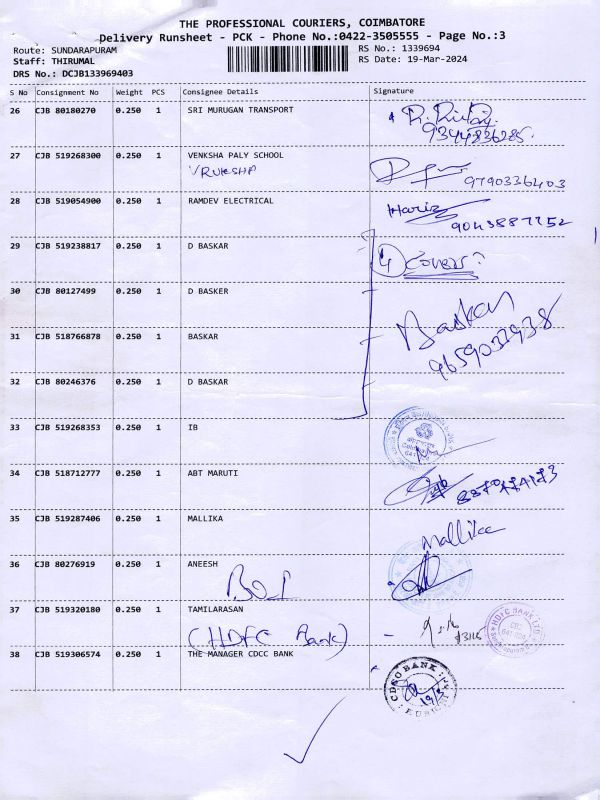 THE PROFESSIONAL COURIERS, COIMBATORE
Delivery Runsheet - PCK - Phone No.:0422-3505555 - Page No.:3
Route: SUNDARAPURAM RS No.: 1339694
Staff: THIRUMAL RS Date: 19-Mar-2024
DRS No.: DCJB133969403
S No Consignment No Weight PCS Consignee Details Signature
26 CJB 80180270 0.250 1 SRI MURUGAN TRANSPORT
9344836285.
27 CJB 519268300 0.250 1 VENKSHA PALY SCHOOL
VRUKSHA 9790336403
28 CJB 519054900 0.250 1 RAMDEV ELECTRICAL Hariz
9043887752
29 CJB 519238817 0.250 1 D BASKAR
4 Covers
30 CJB 80127499 0.250 1 D BASKER
Baskar
31 CJB 518766878 0.250 1 BASKAR
9659033938
32 CJB 80246376 0.250 1 D BASKAR
33 CJB 519268353 0.250 1 IB
34 CJB 518712777 0.250 1 ABT MARUTI
35 CJB 519287406 0.250 1 MALLIKA
Mallika
36 CJB 80276919 0.250 1 ANEESH
BOI
37 CJB 519320180 0.250 1 TAMILARASAN
(HDFC Bank) HDFC BANK LTD
38 CJB 519306574 0.250 1 THE MANAGER CDCC BANK
BANK
19/3